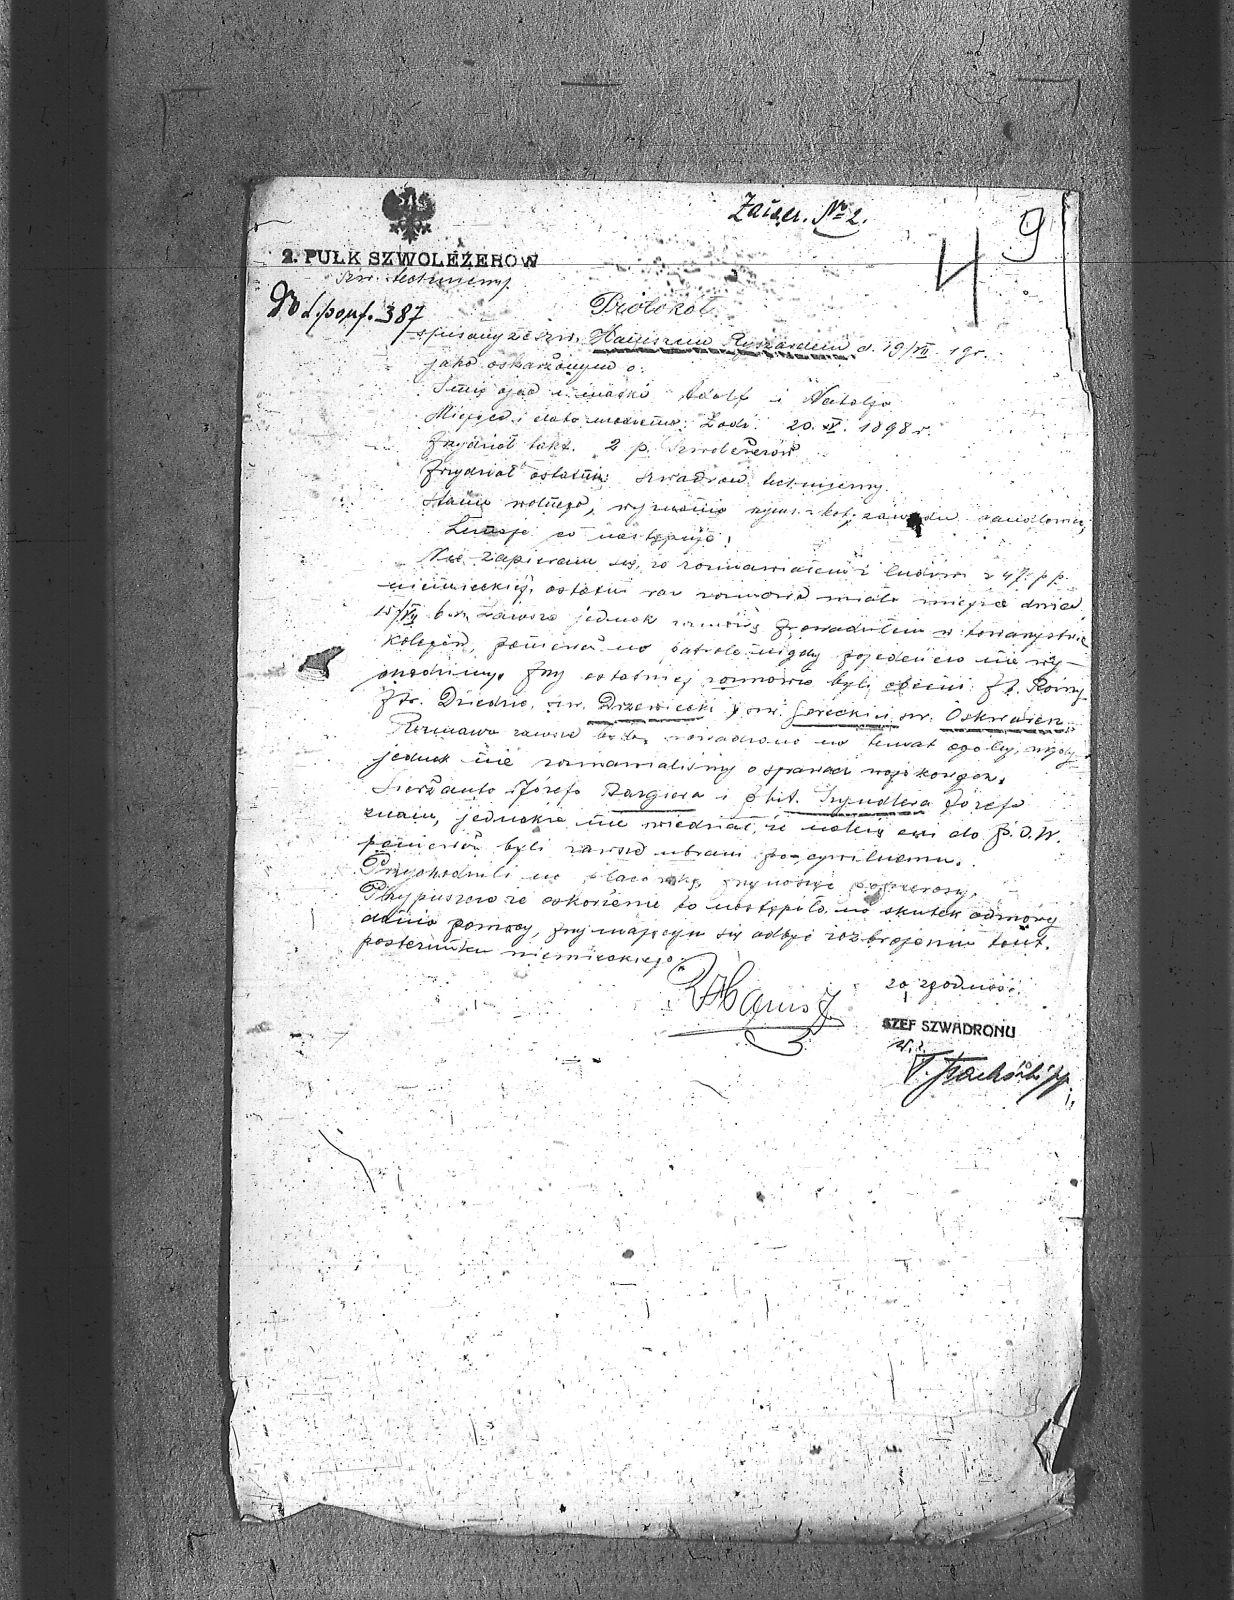 Załącz. № 2.
9
4
2. PUŁK SZWOLEŻERÓW
szw. techniczny.
Do L. pouf. 387
Protokół
spisany ze szw. Haniszem Ryszardem d. 19/VII 19 r.
jako oskarżonym o:
Imię ojca i matki Adolf i Natalja
Miejsce i data urodzenia: Łódź. 20. 1898 r.
Przydział takt. 2 p. Szwoleżerów
Przydział ostatni: szwadron techniczny
Stanu wolnego, wyznania rzyms-kat, zawodu
Zeznaje co następuje:
Nie zapieram się, że rozmawiałem z ludźmi z 47. p.p.
niemieckiej, ostatni raz rozmowa miała miejsce dnia
15/VII b.r. zawsze jednak rozmowę prowadziłem w towarzystwie
kolegów, ponieważ na patrole nigdy pojedeńczo nie wy-
Przy ostatniej rozmowie byli obecni
Dziedzic, szw. Drzewiecki szw. Gorecki i szw. Oskwarek.
Rozmowa zawsze była prowadzona na temat ogólny, nigdy
jednak nie rozmawialiśmy o sprawach wojskowych.
Sierżanta Józefa Zargiera i plut. Szyndlera Józefa
znam, jednakże nie wiedział, że należą oni do P.O.W.
ponieważ byli zawsze ubrani po-cywilnemu.
Przychodzili na placówkę, przynosząc papierosy.
Przypuszczam że oskarżenie to nastąpiło na skutek odmowy
dania pomocy, przy mającym się odbyć rozbrojeniu tamt.
posterunku niemieckiego.
RHanisz
za zgodność.
SZEF SZWADRONU